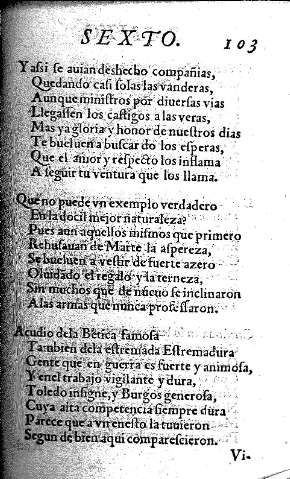 SEXTO. 103
Y assi se auian deshecho compañias,
Quedando casi solas las vanderas,
Aunque ministros por diuersas vias
Llegassen los castigos a las veras,
Mas ya gloria y honor de nuestros dias
Te bueluen a buscar do los esperas,
Que el amor y respecto los inflama
A seguir tu ventura que los llama.
Que no puede vn exemplo verdadero
En la docil mejor naturaleza?
Pues aun aquellos mismos que primero
Rehusauan de Marte la aspereza,
Se bueluen a vestir de fuerte azero
Oluidado el regalo y la terneza,
Sin muchos que de nueuo se inclinaron
A las armas que nunca professaron.
Acudio de la Betica famosa
Tambien de la estremada Estremadura
Gente que en guerra es fuerte y animosa,
Y en el trabajo vigilante y dura,
Toledo insigne, y Burgos generosa,
Cuya alta competencia siempre dura
Parece que a vn enesto la tuuieron
Segun de bien aqui comparescieron.
Vi-